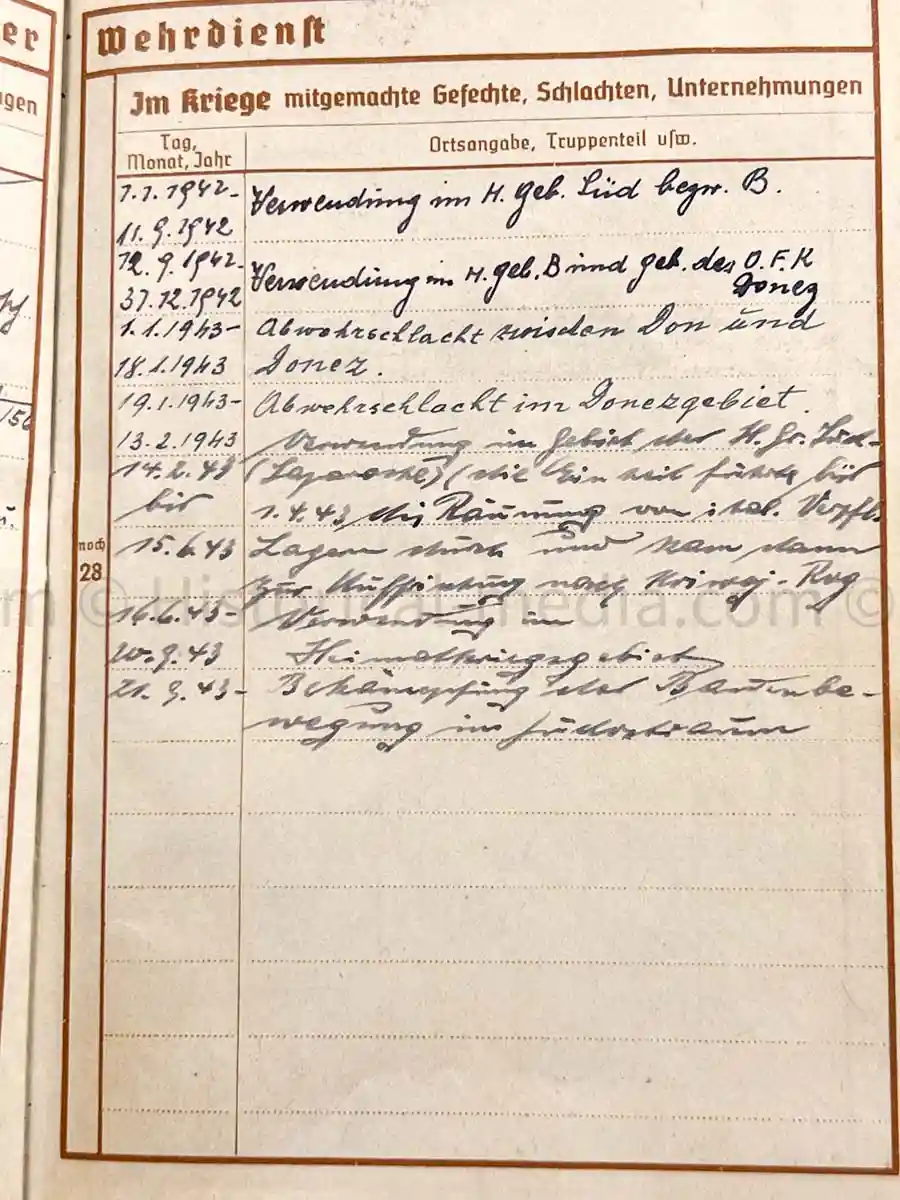 er
Wehrdienst
gen
Im Kriege mitgemachte Gefechte, Schlachten, Unternehmungen
Tag,
Monat, Jahr
Ortsangabe, Truppenteil usw.
1.1.1942-
Verwendung im H. Geb. Süd bezw. B.
11.9.1942
12.9.1942-
Verwendung im H. Geb. B und Geb. des O.F.K
31.12.1942
Donez
1.1.1943- Abwehrschlacht zwischen Don und
18.1.1943 Donez.
19.1.1943- Abwehrschlacht im Donezgebiet.
13.2.1943 Verwendung im Gebiet der H. Gr. Süd-
14.2.43 (die Einheit führte bis
bis 1.4.43 die Räumung von ital. Verpfl.
noch
28
15.6.43 Lagern durch und kam dann
zur Auffrischung nach Kriwoj-Rog
16.6.43- Verwendung im
20.9.43 Heimatkriegsgebiet
21.9.43- Bekämpfung der Bandenbe-
wegung im Südostraum
m © Historicalmedia.com ©